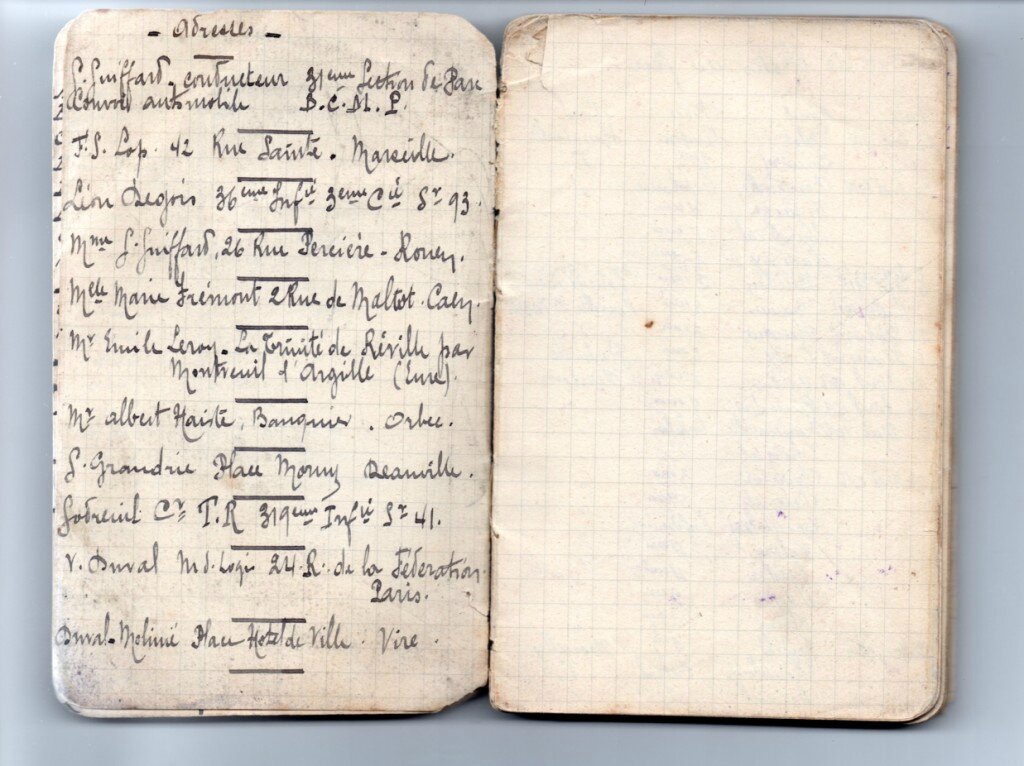 - Adresses -
S. Guiffard, conducteur 31ème Section de Parc
Convois automobile B.C.M.P.
F. S. Lop. 42 Rue Sainte. Marseille.
Léon Degois 36ème Infie 3eme Cie Sr 93.
Mme S. Guiffard, 26 Rue Percière - Rouen.
Melle Marie Frémont 2 Rue de Maltot. Caen.
Mr Emile Leroy. La Trinité de Réville par
Montreuil l'Argille (Eure).
Mr Albert Haisté, Banquier. Orbec.
S. Grandrie Place Morny Deauville.
Godreuil Cr T.R 319eme Infie Sr 41.
V. Duval Md. Logis 24. R. de la Fédération.
Paris.
Duval-Molinié Place Hotel de Ville. Vire.